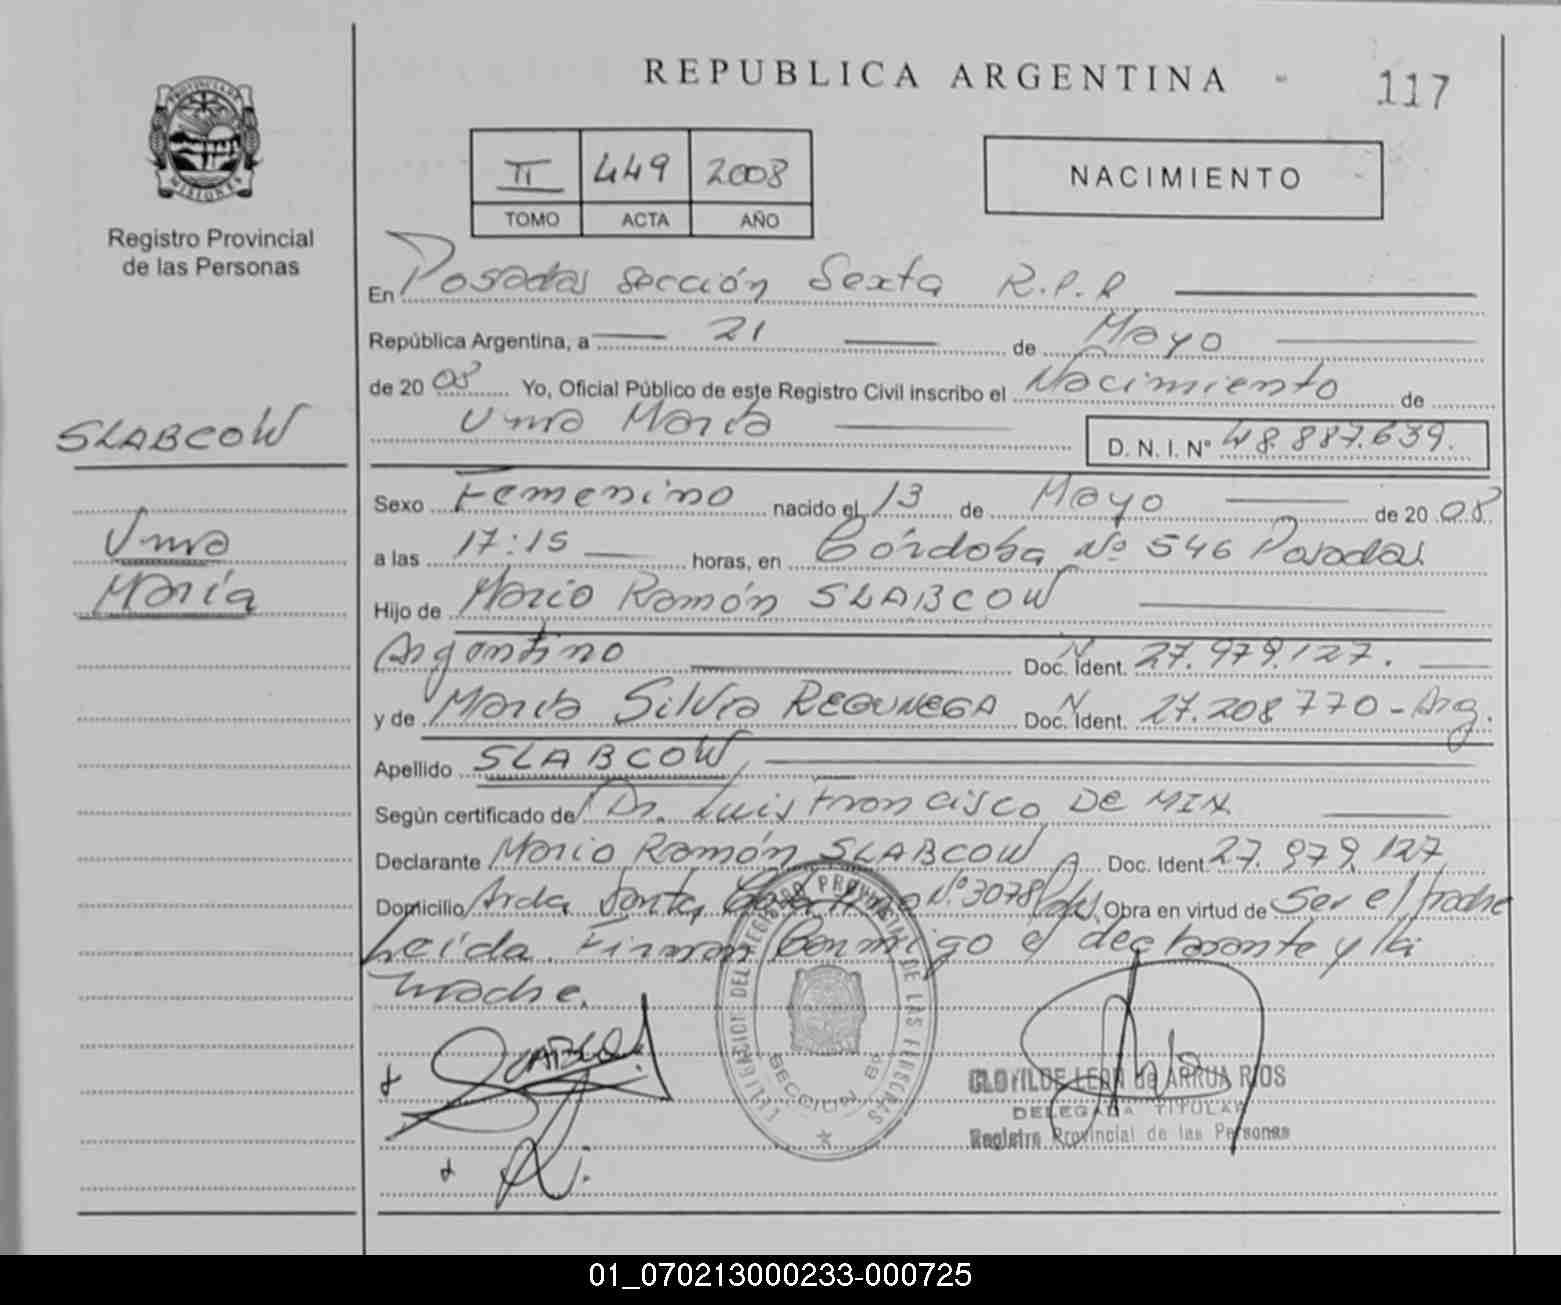 REPUBLICA ARGENTINA
117
PROVINCIA DE MISIONES
Registro Provincial
de las Personas
II 449 2008
TOMO ACTA AÑO
NACIMIENTO
En Posadas sección Sexta R.P.P
República Argentina, a 21 de Mayo
de 2008 Yo, Oficial Público de este Registro Civil inscribo el Nacimiento de
Uma María D. N. I. N° 48.887.639.
SLABCOW
Uma
María
Sexo Femenino nacido el 13 de Mayo de 2008
a las 17:15 horas, en Córdoba Nº 546 Posadas
Hijo de Mario Ramón SLABCOW
Argentino Doc. Ident. N 27.979.127.
y de María Silvia REQUNEGA Doc. Ident. N 27.208770-Arg.
Apellido SLABCOW,
Según certificado de Dr. Luis Francisco De MIN
Declarante Mario Ramón SLABCOW Doc. Ident. 27.979.127
Domicilio Avda. Santa Catalina Nº 3078 Pdas, Obra en virtud de Ser el padre
Leída. Firman Conmigo el declarante y la
madre.
DELEGACION DEL REGISTRO PROVINCIAL DE LAS PERSONAS
SECCION 6º
CLOTILDE LEON de ARRUA RIOS
DELEGADA TITULAR
Registro Provincial de las Personas
01_070213000233-000725